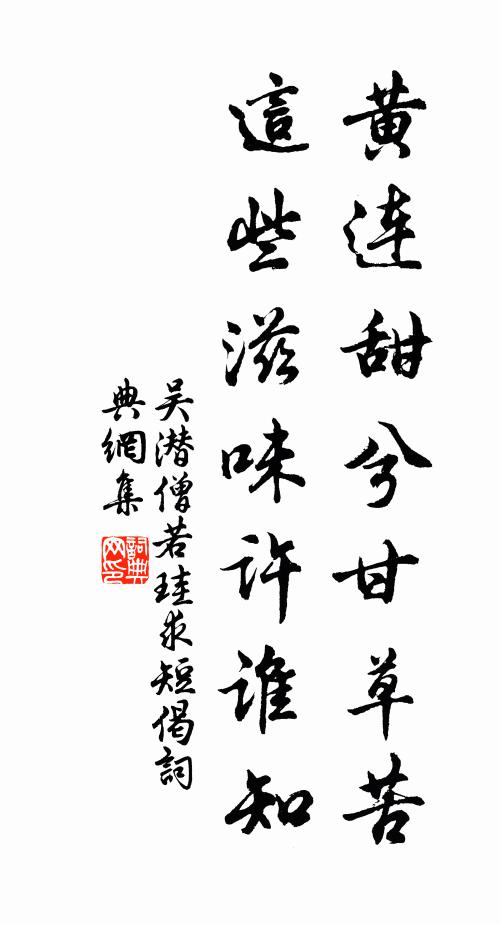 黄连甜兮甘草苦
這些滋味許誰知
吴潜僧若珪求短偈詞
典網集
詞典
网印